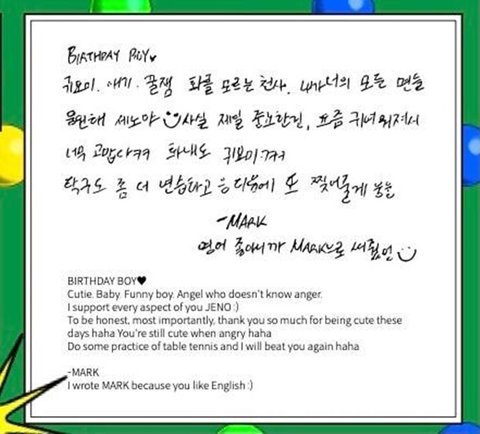 BIRTHDAY BOY♥
귀요미. 애기. 꿀잼 화를 모르는 천사. 내가 너의 모든 면을
응원해 제노야 :) 사실 제일 중요한건, 요즘 귀여워져서
너무 고맙다ㅋㅋ 화내도 귀요미ㅋㅋ
탁구도 좀 더 연습하고 응 다음에 또 찢어줄게
-MARK
영어 좋아서 MARK으로 써줬어 :)
BIRTHDAY BOY♥
Cutie. Baby. Funny boy. Angel who doesn't know anger.
I support every aspect of you JENO :)
To be honest, most importantly, thank you so much for being cute these
days haha You're still cute when angry haha
Do some practice of table tennis and I will beat you again haha
-MARK
I wrote MARK because you like English :)